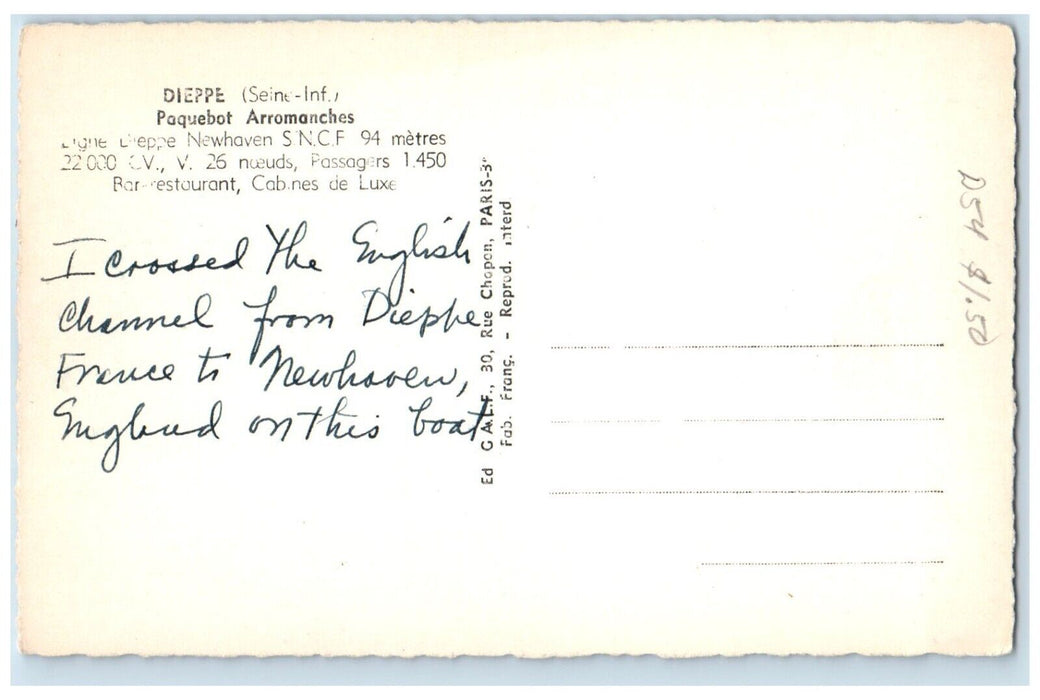 DIEPPE (Seine-Inf.)
Paquebot Arromanches
Ligne Dieppe Newhaven S.N.C.F 94 mètres
22 000 C.V., V. 26 nœuds, Passagers 1.450
Bar-restaurant, Cabines de Luxe
I crossed The English
Channel from Dieppe
France to Newhaven,
England on this boat
Ed G.A.L.F., 30, Rue Chapon, PARIS-3e
Fab. Franç. - Reprod. interd
D54 $1.50